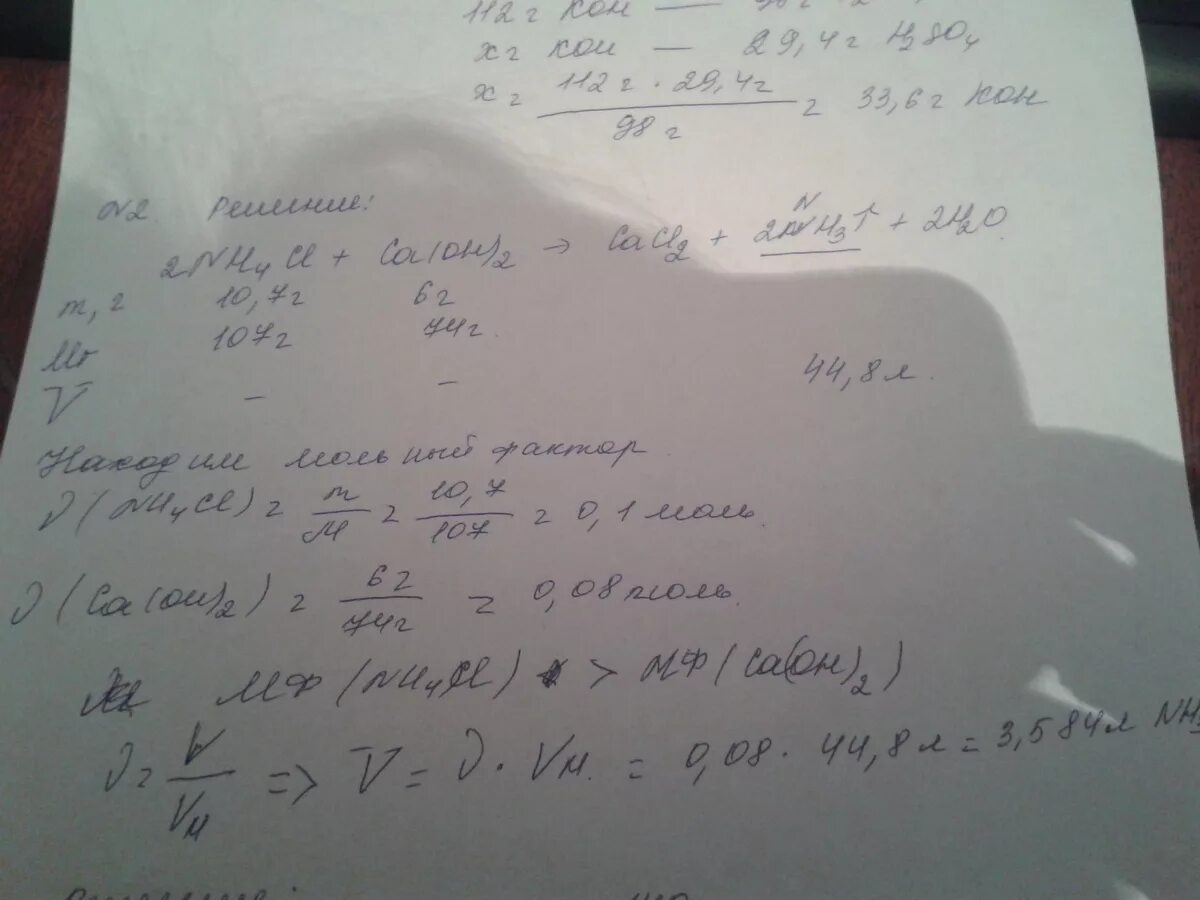 112г КОН —
хг КОН — 29,4г H₂SO₄
х = 112г · 29,4г / 98г = 33,6г КОН
N2. Решение:
2NH₄Cl + Ca(OH)₂ → CaCl₂ + 2NH₃↑ + 2H₂O
m, г 10,7г 6г
Mr 107г 74г.
V – – 44,8л.
Находим мольный фактор
ν(NH₄Cl) = m/M = 10,7/107 = 0,1 моль.
ν(Ca(OH)₂) = 6г/74г = 0,08 моль.
МФ(NH₄Cl) > МФ(Ca(OH)₂)
ν = V/Vм => V = ν · Vм. = 0,08 · 44,8л = 3,584л NH₃